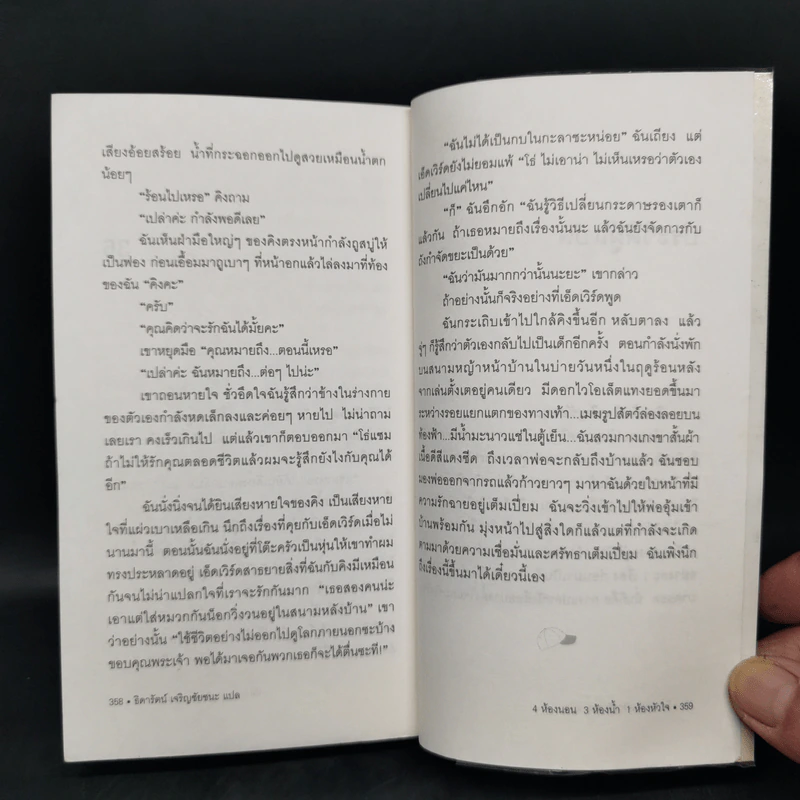 เสียงอ้อยสร้อย น้ำที่กระฉอกออกไปดูสวยเหมือนน้ำตก
น้อยๆ
“ร้อนไปเหรอ” คิงถาม
“เปล่าค่ะ กำลังพอดีเลย”
ฉันเห็นฝ่ามือใหญ่ๆ ของคิงตรงหน้ากำลังถูสบู่ให้
เป็นฟอง ก่อนเอื้อมมาถูเบาๆ ที่หน้าอกแล้วไล่ลงมาที่ท้อง
ของฉัน “คิงคะ”
“ครับ”
“คุณคิดว่าจะรักฉันได้มั้ยคะ”
เขาหยุดมือ “คุณหมายถึง...ตอนนี้เหรอ”
“เปล่าค่ะ ฉันหมายถึง...ต่อๆ ไปน่ะ”
เขาถอนหายใจ ชั่วอึดใจฉันรู้สึกว่าข้างในร่างกาย
ของตัวเองกำลังหดเล็กลงและค่อยๆ หายไป ไม่น่าถาม
เลยเรา คงเร็วเกินไป แต่แล้วเขาก็ตอบออกมา “โธ่แซม
ถ้าไม่ให้รักคุณตลอดชีวิตแล้วผมจะรู้สึกยังไงกับคุณได้
อีก”
ฉันนั่งนิ่งจนได้ยินเสียงหายใจของคิง เป็นเสียงหาย
ใจที่แผ่วเบาเหลือเกิน นึกถึงเรื่องที่คุยกับเอ็ดเวิร์ดเมื่อไม่
นานมานี้ ตอนนั้นฉันนั่งอยู่ที่โต๊ะครัวเป็นหุ่นให้เขาทำผม
ทรงประหลาดอยู่ เอ็ดเวิร์ดสาธยายสิ่งที่ฉันกับคิงมีเหมือน
กันจนไม่น่าแปลกใจที่เราจะรักกันมาก “เธอสองคนน่ะ
เอาแต่ใส่หมวกกันน็อกวิ่งวนอยู่ในสนามหลังบ้าน” เขา
ว่าอย่างนั้น “ใช้ชีวิตอย่างไม่ออกไปดูโลกภายนอกซะบ้าง
ขอบคุณพระเจ้า พอได้มาเจอกันพวกเธอก็จะได้ตื่นซะที!”
358 • ธิดารัตน์ เจริญชัยชนะ แปล
“ฉันไม่ได้เป็นกบในกะลาซะหน่อย” ฉันเถียง แต่
เอ็ดเวิร์ดยังไม่ยอมแพ้ “โธ่ ไม่เอาน่า ไม่เห็นเหรอว่าตัวเอง
เปลี่ยนไปแค่ไหน”
“ก็” ฉันอึกอัก “ฉันรู้วิธีเปลี่ยนกระดาษรองเตาก็
แล้วกัน ถ้าเธอหมายถึงเรื่องนั้นนะ แล้วฉันยังจัดการกับ
ถังกำจัดขยะเป็นด้วย”
“ฉันว่ามันมากกว่านั้นนะยะ” เขากล่าว
ถ้าอย่างนั้นก็จริงอย่างที่เอ็ดเวิร์ดพูด
ฉันกระเถิบเข้าไปใกล้คิงขึ้นอีก หลับตาลง แล้ว
จู่ๆ ก็รู้สึกว่าตัวเองกลับไปเป็นเด็กอีกครั้ง ตอนกำลังนั่งพัก
บนสนามหญ้าหน้าบ้านในบ่ายวันหนึ่งในฤดูร้อนหลัง
จากเล่นตั้งเตอยู่คนเดียว มีดอกไวโอเล็ตแทงยอดขึ้นมา
ระหว่างรอยแยกแตกของทางเท้า...เมฆรูปสัตว์ล่องลอยบน
ท้องฟ้า...มีน้ำมะนาวแช่ในตู้เย็น...ฉันสวมกางเกงขาสั้นผ้า
เนื้อดีสีแดงซีด ถึงเวลาพ่อจะกลับถึงบ้านแล้ว ฉันชอบ
มองพ่อออกจากรถแล้วก้าวยาวๆ มาหาฉันด้วยใบหน้าที่มี
ความรักฉายอยู่เต็มเปี่ยม ฉันจะวิ่งเข้าไปให้พ่ออุ้มเข้า
บ้านพร้อมกัน มุ่งหน้าไปสู่สิ่งใดก็แล้วแต่ที่กำลังจะเกิด
ตามมาด้วยความเชื่อมั่นและศรัทธาเต็มเปี่ยม ฉันเพิ่งนึก
ถึงเรื่องนี้ขึ้นมาได้เดี๋ยวนี้เอง
4 ห้องนอน 3 ห้องน้ำ 1 ห้องหัวใจ • 359